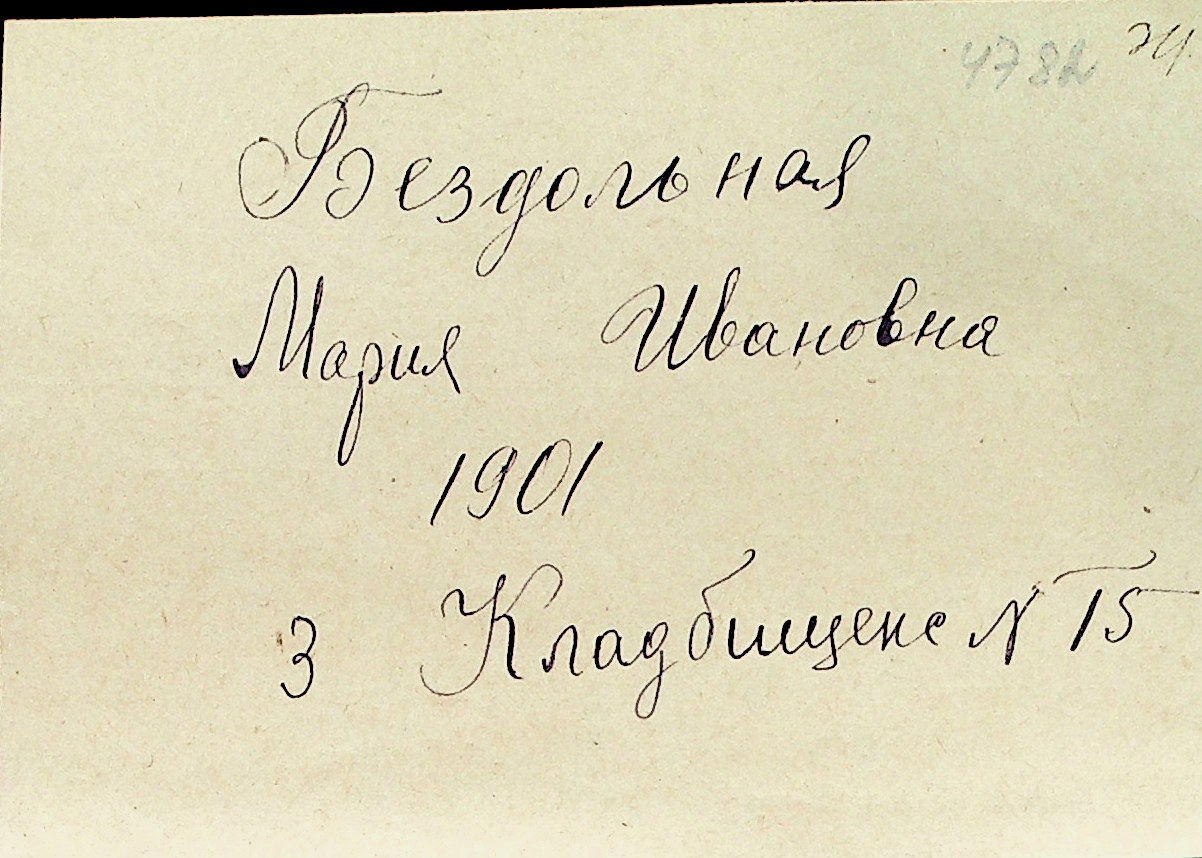 4782
Бездольная
Мария Ивановна
1901
3 Кладбищенс N 15